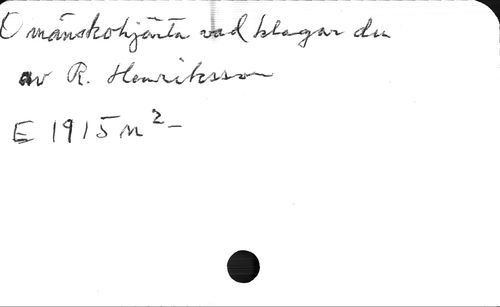 O mänskohjärta vad klagar du
av R. Henriksson
E 1915 n²-